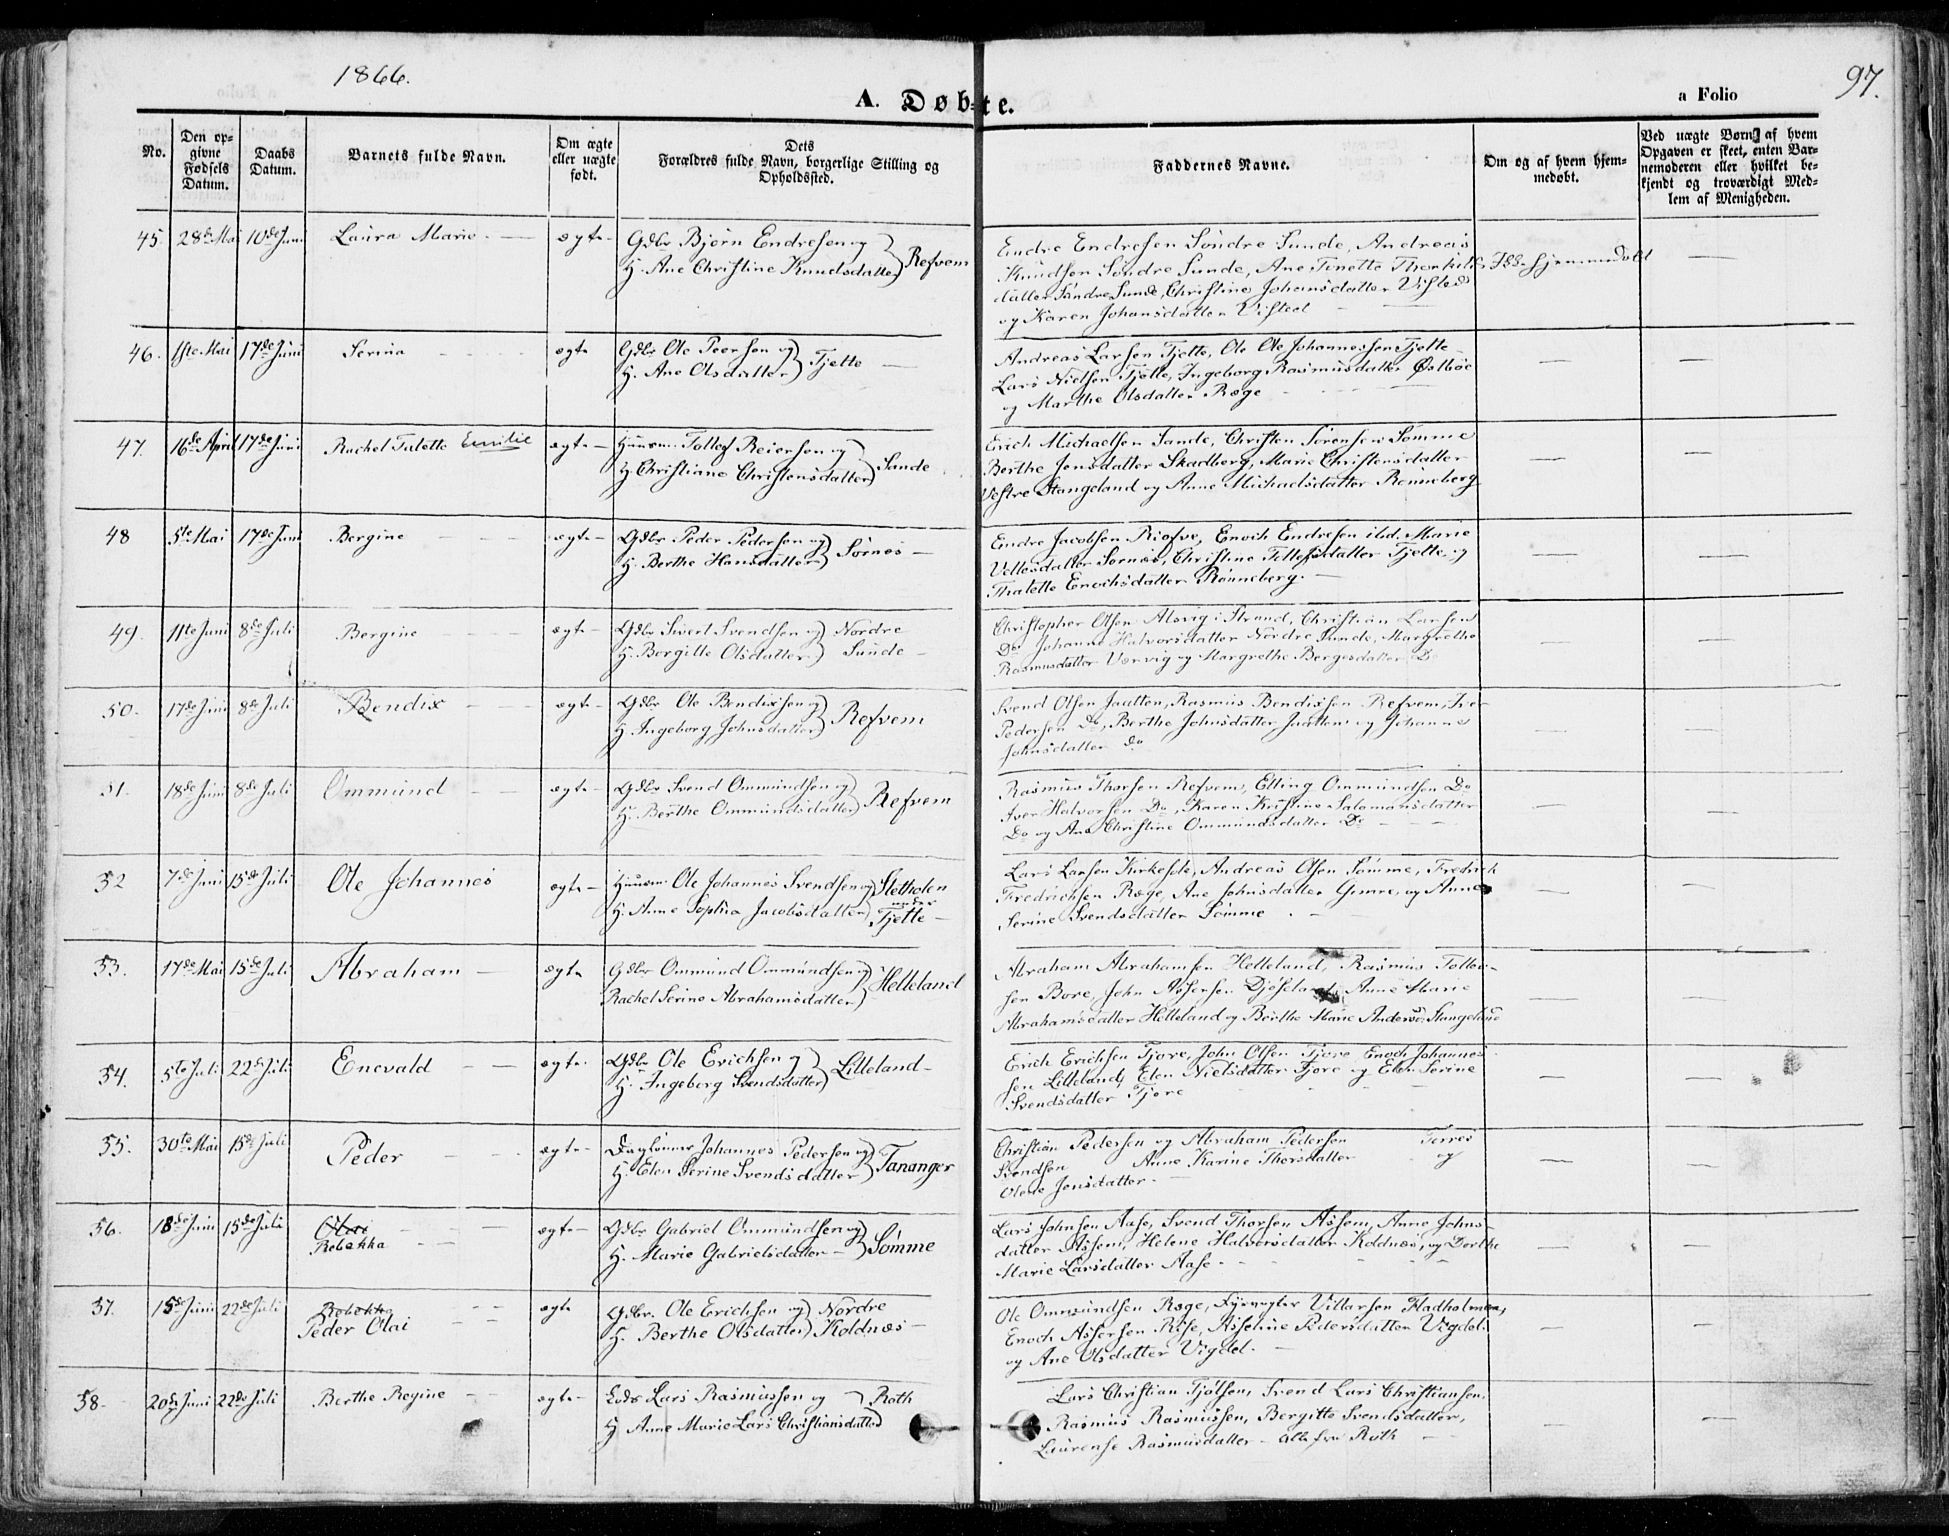 1866.
97.
A. Døbte.
a Folio
No.
Den opgivne Fødsels Datum.
Daabs Datum.
Barnets fulde Navn.
Om ægte eller uægte født.
Dets Forældres fulde Navn, borgerlige Stilling og Opholdssted.
Faddernes Navne.
Om og af hvem hjemmedøbt.
Ved uægte Børn, af hvem Opgaven er skeet, enten Barnemoderen eller hvilket bekjendt og troværdigt Medlem af Menigheden.
45. 28de Mai 10de Juni Laura Marie ægte Gdbr Bjørn Endresen og
H. Ane Christine Knudsdatter Refvem
Endre Endresen Søndre Sunde, Andreas
Knudsen Søndre Sunde, Ane Tonette Thorkils-
datter Søndre Sunde, Christine Johansdatter Visted
og Karen Johansdatter Visted
Ikke hjemmedøbt
46. 1ste Mai 17de Juni Serina ægte Gdbr Ole Peersen og
H. Ane Olsdatter Tjelte
Andreas Larsen Tjelte, Ole Ole Johannessen Tjelte
Lars Nielsen Tjelte, Ingeborg Rasmusdatter Østboe
og Marthe Olsdatter Ræge
47. 16de April 17de Juni Rachel Talette Emilie ægte Huusm. Tollef Reiersen og
H. Christiane Christensdatter Sande
Erich Michaelsen Sande, Christen Sørensen Sømme
Berthe Jensdatter Skadberg, Marie Christensdatter
Vestre Stangeland og Anne Michaelsdatter Renneberg
48 5te Mai 17de Juni Bergine ægte Gdbr Peder Pedersen og
H. Berthe Hansdatter Sørnes
Endre Jacobsen Risfve, Enoch Endresen ibid. Marie
Sørnes, Christine Tollefsdatter Tjelte og
Thalette Enochsdatter Rønneberg.
49. 11te Juni 8de Juli Bergine ægte Gdbr Sivert Svendsen og
H. Bergitte Olsdatter Nordre Sunde
Christopher Olsen Alsvig i Strand, Christian Larsen
Do Johanne Halvorsdatter Nordre Sunde, Margrethe
Rasmusdatter Værvig og Margrethe Bergesdatter Do
50. 17de Juni 8de Juli Bendix ægte Gdbr Ole Bendixsen og
H. Ingeborg Johnsdatter Refvem
Svend Olsen Jaatten, Rasmus Bendixsen Refvem, Iver
Pedersen Do, Berthe Johnsdatter Jaatten og Johanne
Johnsdatter Do
51. 18de Juni 8de Juli Ommund ægte Gdbr Svend Ommundsen og
H. Berthe Ommundsdatter Refvem
Rasmus Thorsen Refvem, Elling Ommundsen Do
Iver Halvorsen Do, Karen Kristine Salomonsdatter
Do og Ane Christine Ommundsdatter Do
52 7de Juni 15de Juli Ole Johannes ægte Huusm. Ole Johannes Svendsen og
H. Anne Sophia Jacobsdatter Sletholen under Tjelte
Lars Larsen Kirkesole, Andreas Olsen Sømme, Fredrich
Fredrichsen Ræge, Ane Johnsdatter Gimre, og Anne
Serine Svendsdatter Sømme
53. 17de Mai 15de Juli Abraham ægte Gdbr Ommund Ommundsen og
Rachel Serine Abrahamsdatter Helleland
Abraham Abrahamsen Helleland, Rasmus Tollef-
sen Bore, John Assersen Anne Marie
Abrahamsdatter Helleland og Berthe Marie Andersd. Stangeland
54. 5te Juli 22de Juli Enevald ægte Gdbr Ole Erichsen og
H. Ingeborg Svendsdatter Lilleland
Erich Erichsen Tjore, John Olsen Tjore Enoch Johannes-
sen Lilleland, Elen Nielsdatter Tjore og Elen Serine
Svendsdatter Tjore
55. 30te Mai 15de Juli Peder ægte Daglønner Johannes Pedersen og
H. Elen Serine Svendsdatter Tananger
Christian Pedersen og Abraham Pedersen Torres
Svendsen Anne Karine Thorsdatter og
Olene Jensdatter
56. 18de Juni 15de Juli Olai
Rebekka ægte Gdbr Gabriel Ommundsen og
H. Marie Gabrielsdatter Sømme
Lars Johnsen Aase, Svend Thorsen Assem, Anne Johns-
datter Assem, Helene Halvorsdatter Koldnæs, og Dorthe
Marie Larsdatter Aase
57. 15de Juni 22de Juli Rebekka
Peder Olai ægte Gdbr. Ole Erichsen og
H. Berthe Olsdatter Nordre Koldnæs
Ole Ommundsen Ræge, Fyrvogter Villarsen Fladholmen,
Enoch Assersen Rise, Asseline Pedersdatter Vigdel
og Ane Olsdatter Vigdel.
58. 20de Juni 22de Juli Berthe Regine ægte Lods Lars Rasmussen og
H. Anne Marie Lars Christiansdatter Roth
Lars Christian Tjølsen, Svend Lars Christiansen,
Rasmus Rasmussen, Bergitte Svendsdatter,
Laurense Rasmusdatter - alle fra Roth